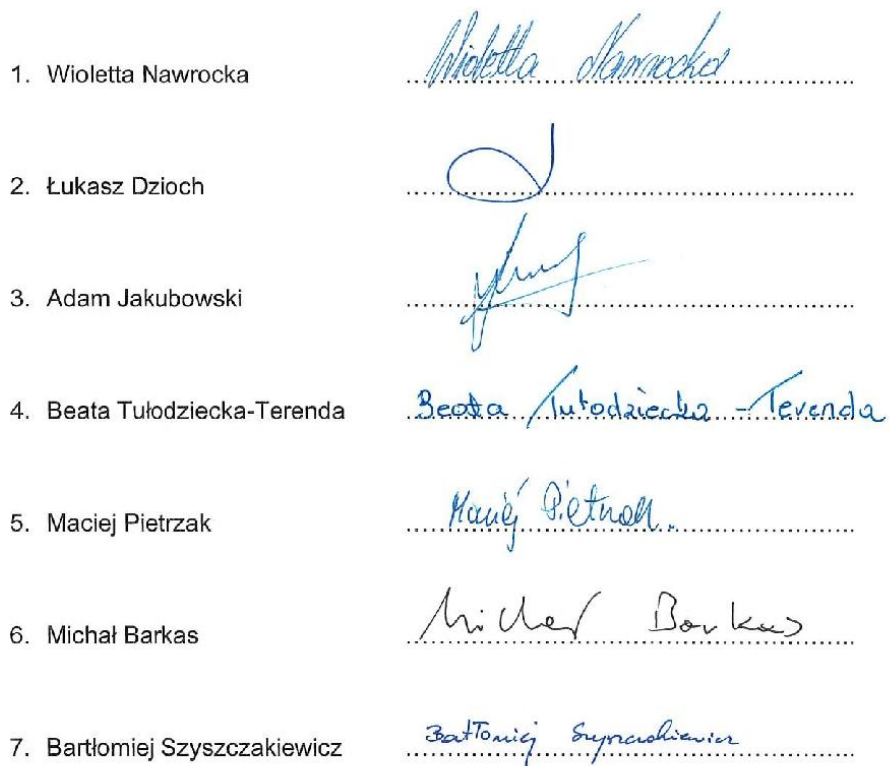 1. Wioletta Nawrocka Wioletta Nawrocka
2. Łukasz Dzioch
3. Adam Jakubowski
4. Beata Tułodziecka-Terenda Beata Tułodziecka - Terenda
5. Maciej Pietrzak Maciej Pietrzak
6. Michał Barkas Michał Barkas
7. Bartłomiej Szyszczakiewicz